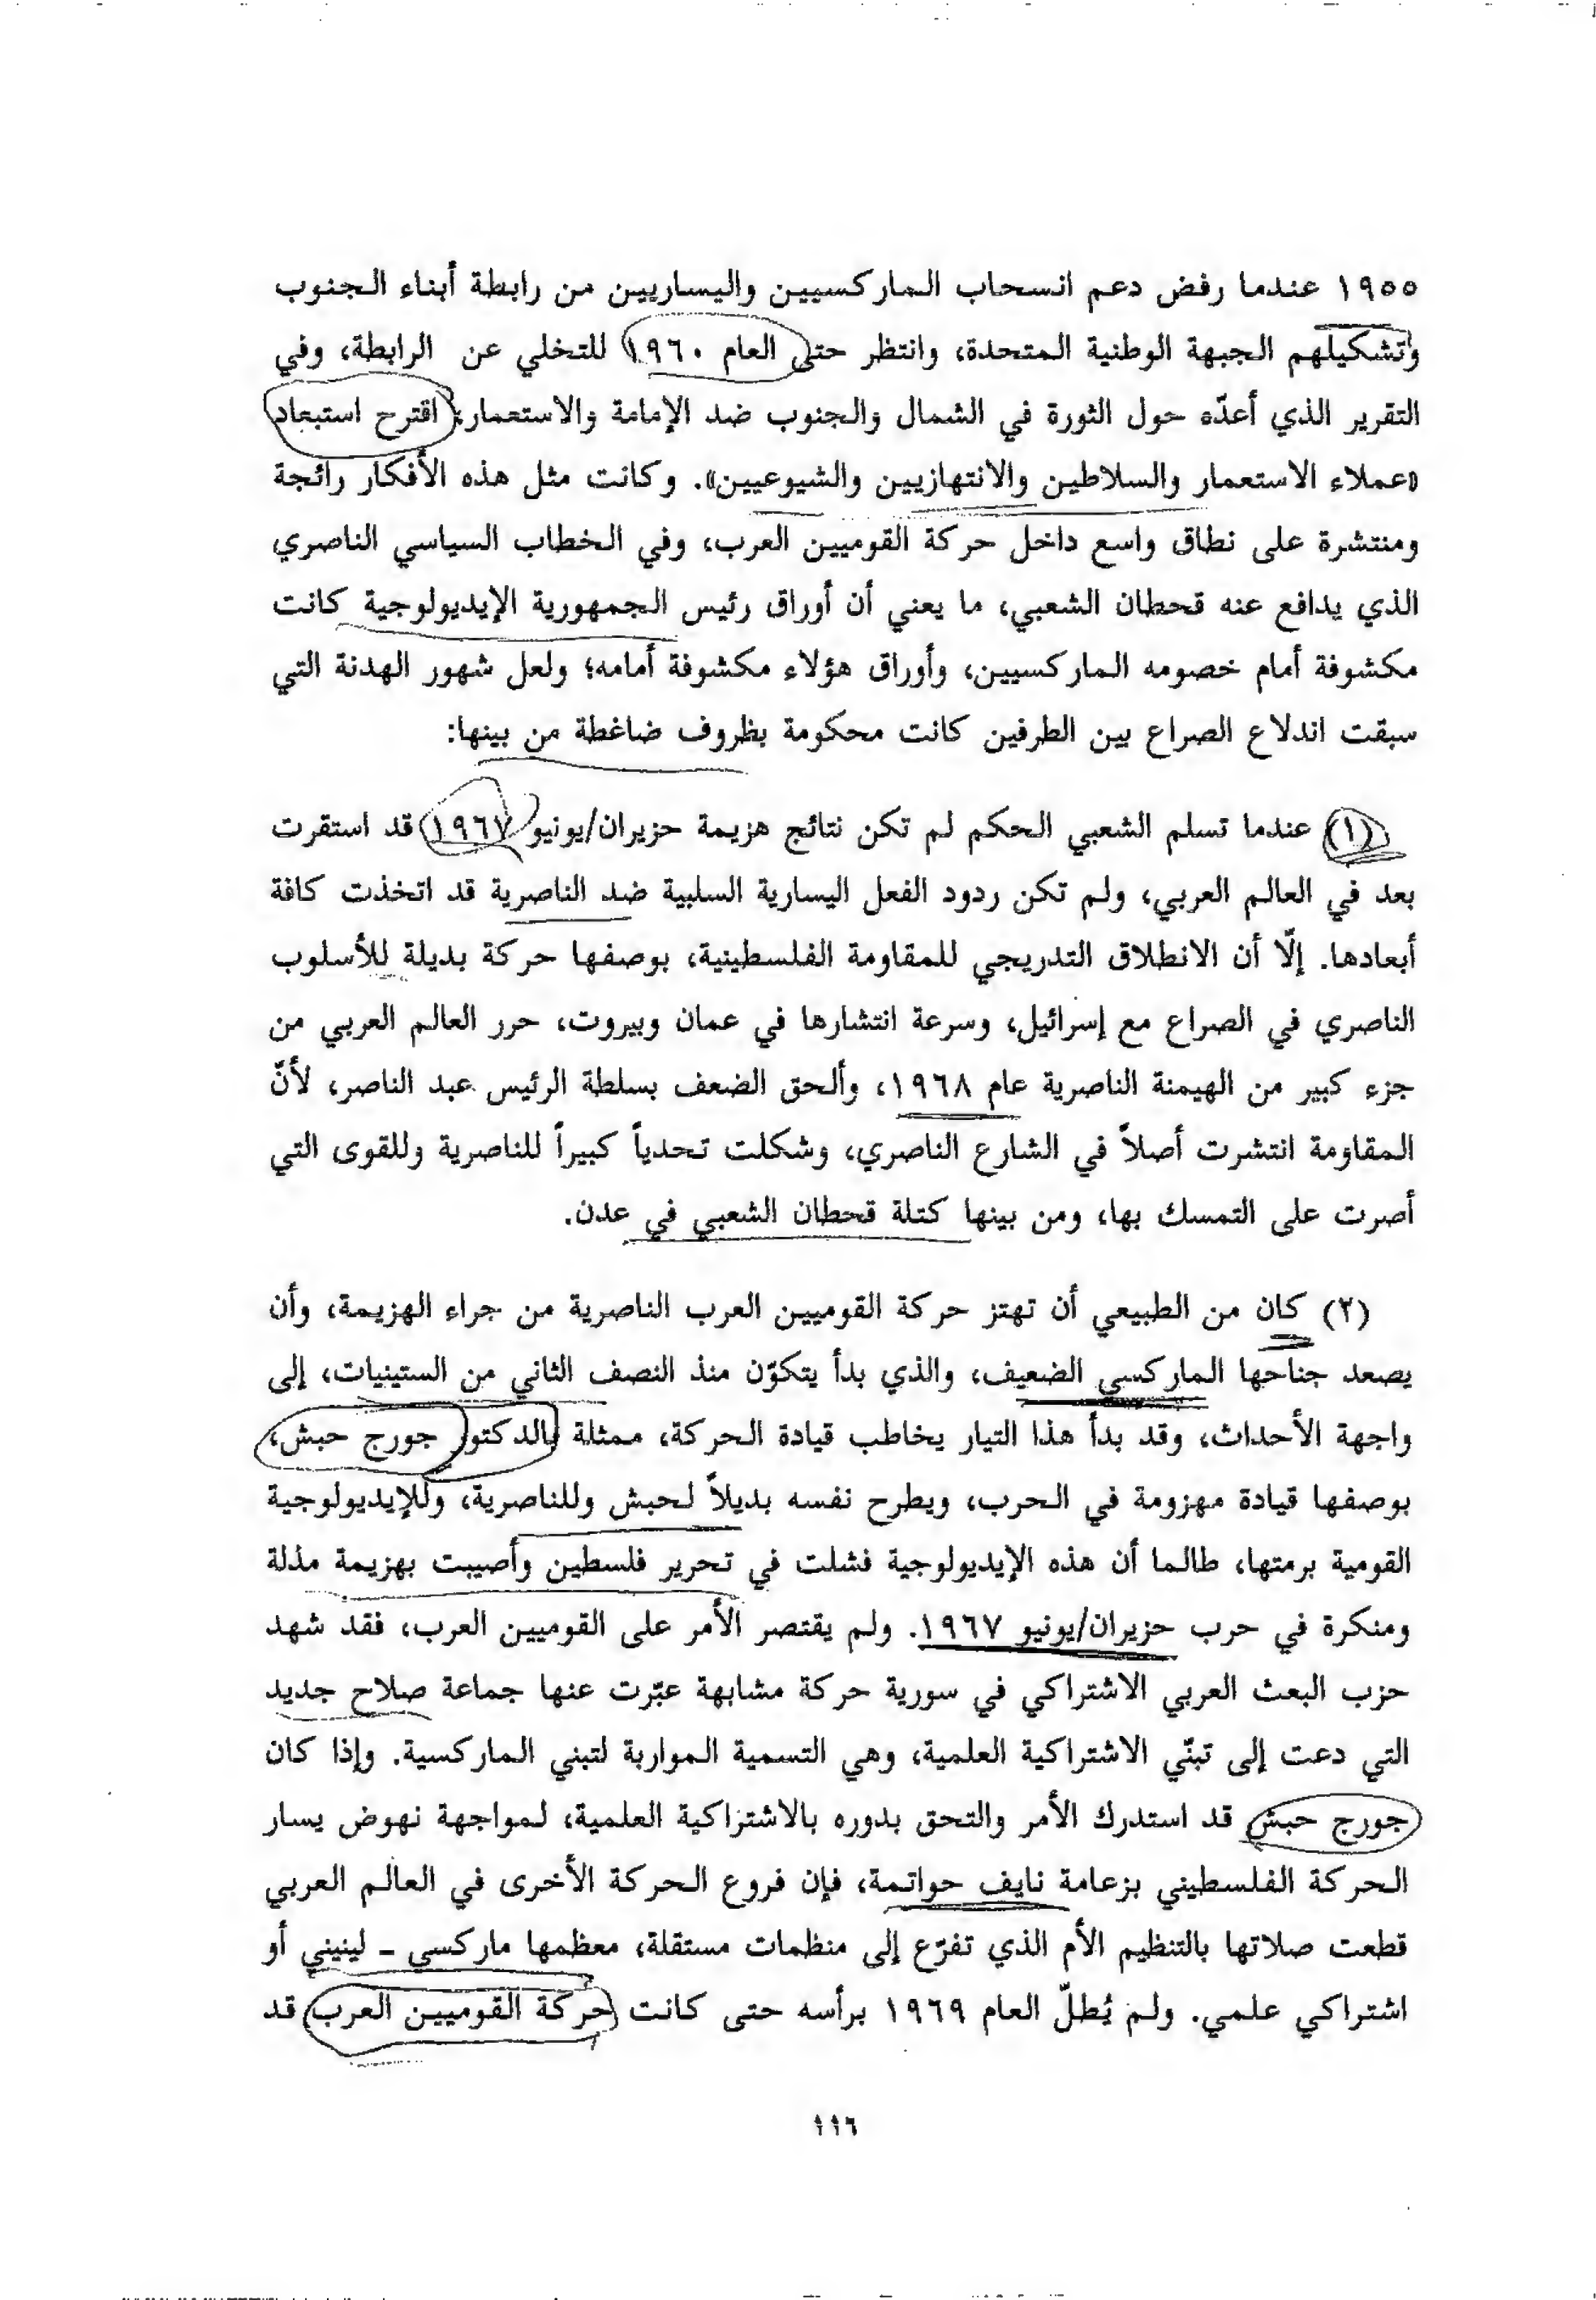 ١٩٥٥ عندما رفض دعم انسحاب الماركسيين واليساريين من رابطة أبناء الجنوب
وتشكيلهم الجبهة الوطنية المتحدة، وانتظر حتى العام ١٩٦٠ للتخلي عن الرابطة، وفي
التقرير الذي أعدّه حول الثورة في الشمال والجنوب ضد الإمامة والاستعمار؛ اقترح استبعاد
«عملاء الاستعمار والسلاطين والانتهازيين والشيوعيين». وكانت مثل هذه الأفكار رائجة
ومنتشرة على نطاق واسع داخل حركة القوميين العرب، وفي الخطاب السياسي الناصري
الذي يدافع عنه قحطان الشعبي، ما يعني أن أوراق رئيس الجمهورية الإيديولوجية كانت
مكشوفة أمام خصومه الماركسيين، وأوراق هؤلاء مكشوفة أمامه؛ ولعل شهور الهدنة التي
سبقت اندلاع الصراع بين الطرفين كانت محكومة بظروف ضاغطة من بينها:
(١) عندما تسلم الشعبي الحكم لم تكن نتائج هزيمة حزيران/يونيو ١٩٦٧ قد استقرت
بعد في العالم العربي، ولم تكن ردود الفعل اليسارية السلبية ضد الناصرية قد اتخذت كافة
أبعادها. إلّا أن الانطلاق التدريجي للمقاومة الفلسطينية، بوصفها حركة بديلة للأسلوب
الناصري في الصراع مع إسرائيل، وسرعة انتشارها في عمان وبيروت، حرر العالم العربي من
جزء كبير من الهيمنة الناصرية عام ١٩٦٨، وألحق الضعف بسلطة الرئيس عبد الناصر، لأنّ
المقاومة انتشرت أصلاً في الشارع الناصري، وشكلت تحدياً كبيراً للناصرية وللقوى التي
أصرت على التمسك بها، ومن بينها كتلة قحطان الشعبي في عدن.
(٢) كان من الطبيعي أن تهتز حركة القوميين العرب الناصرية من جراء الهزيمة، وأن
يصعد جناحها الماركسي الضعيف، والذي بدأ يتكوّن منذ النصف الثاني من الستينيات، إلى
واجهة الأحداث، وقد بدأ هذا التيار يخاطب قيادة الحركة، ممثلة بالدكتور جورج حبش،
بوصفها قيادة مهزومة في الحرب، ويطرح نفسه بديلاً لحبش وللناصرية، وللإيديولوجية
القومية برمتها، طالما أن هذه الإيديولوجية فشلت في تحرير فلسطين وأصيبت بهزيمة مذلة
ومنكرة في حرب حزيران/يونيو ١٩٦٧. ولم يقتصر الأمر على القوميين العرب، فقد شهد
حزب البعث العربي الاشتراكي في سورية حركة مشابهة عبّرت عنها جماعة صلاح جديد
التي دعت إلى تبنّي الاشتراكية العلمية، وهي التسمية المواربة لتبني الماركسية. وإذا كان
جورج حبش قد استدرك الأمر والتحق بدوره بالاشتراكية العلمية، لمواجهة نهوض يسار
الحركة الفلسطيني بزعامة نايف حواتمة، فإن فروع الحركة الأخرى في العالم العربي
قطعت صلاتها بالتنظيم الأم الذي تفرّع إلى منظمات مستقلة، معظمها ماركسي ـ لينيني أو
اشتراكي علمي. ولم يُطلّ العام ١٩٦٩ برأسه حتى كانت حركة القوميين العرب قد
١١٦